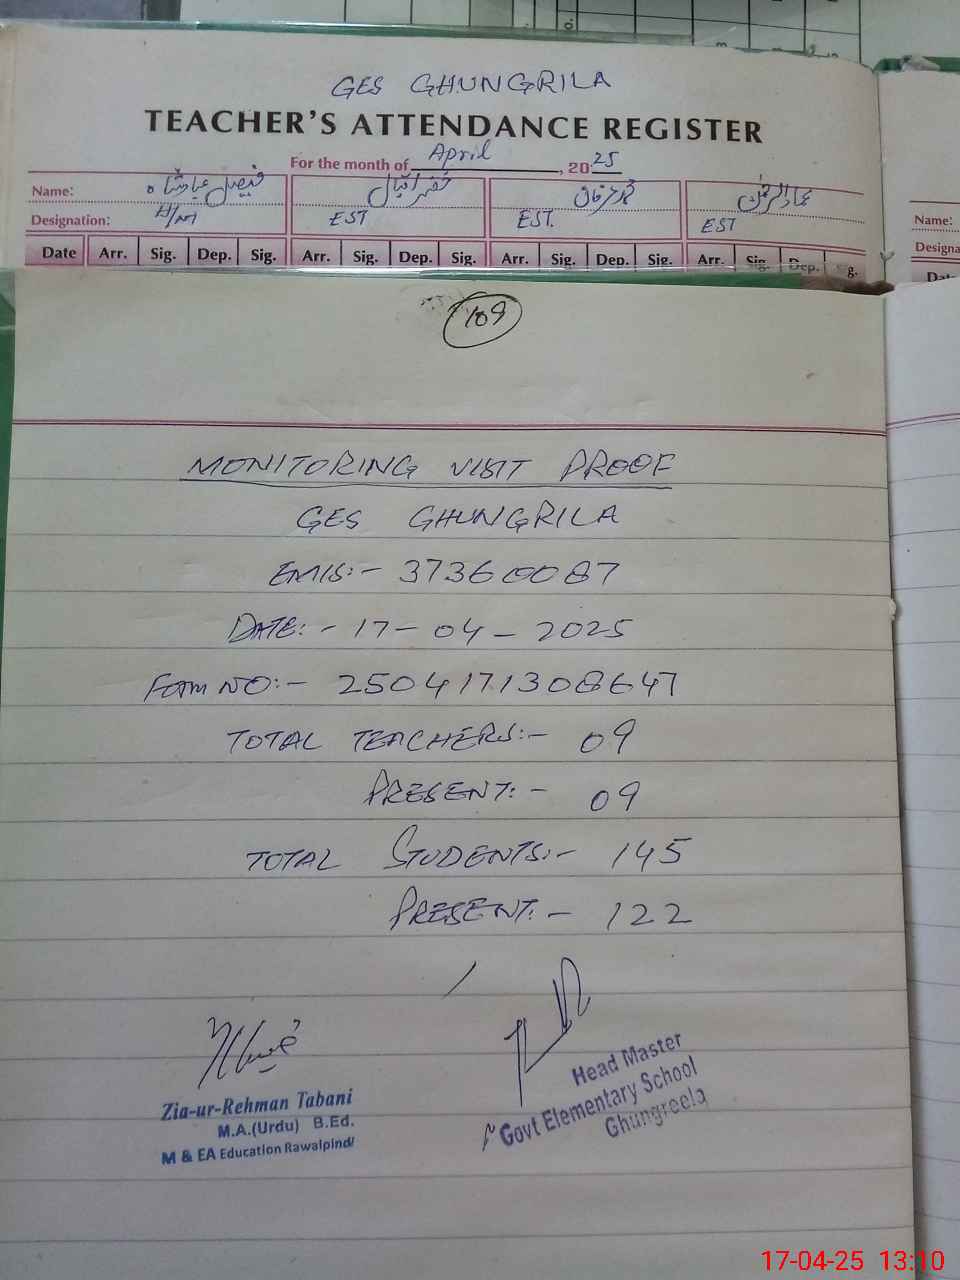 GES GHUNGRILA
TEACHER'S ATTENDANCE REGISTER
For the month of April, 2025
Name: فیصل عباس شاہ خضر اقبال
Designation: H/M EST EST. EST
Date Arr. Sig. Dep. Sig. Arr. Sig. Dep. Sig. Arr. Sig. Dep. Sig. Arr. Sig. Dep. Sig.
Name:
109
MONITORING VISIT PROOF
GES GHUNGRILA
EMIS:- 37360087
DATE:- 17-04-2025
Form NO:- 2504171308647
TOTAL TEACHERS:- 09
PRESENT:- 09
TOTAL STUDENTS:- 145
PRESENT:- 122
Zia-ur-Rehman Tabani
M.A.(Urdu) B.Ed.
M & EA Education Rawalpindi
Head Master
Govt Elementary School
Ghungreela
17-04-25 13:10